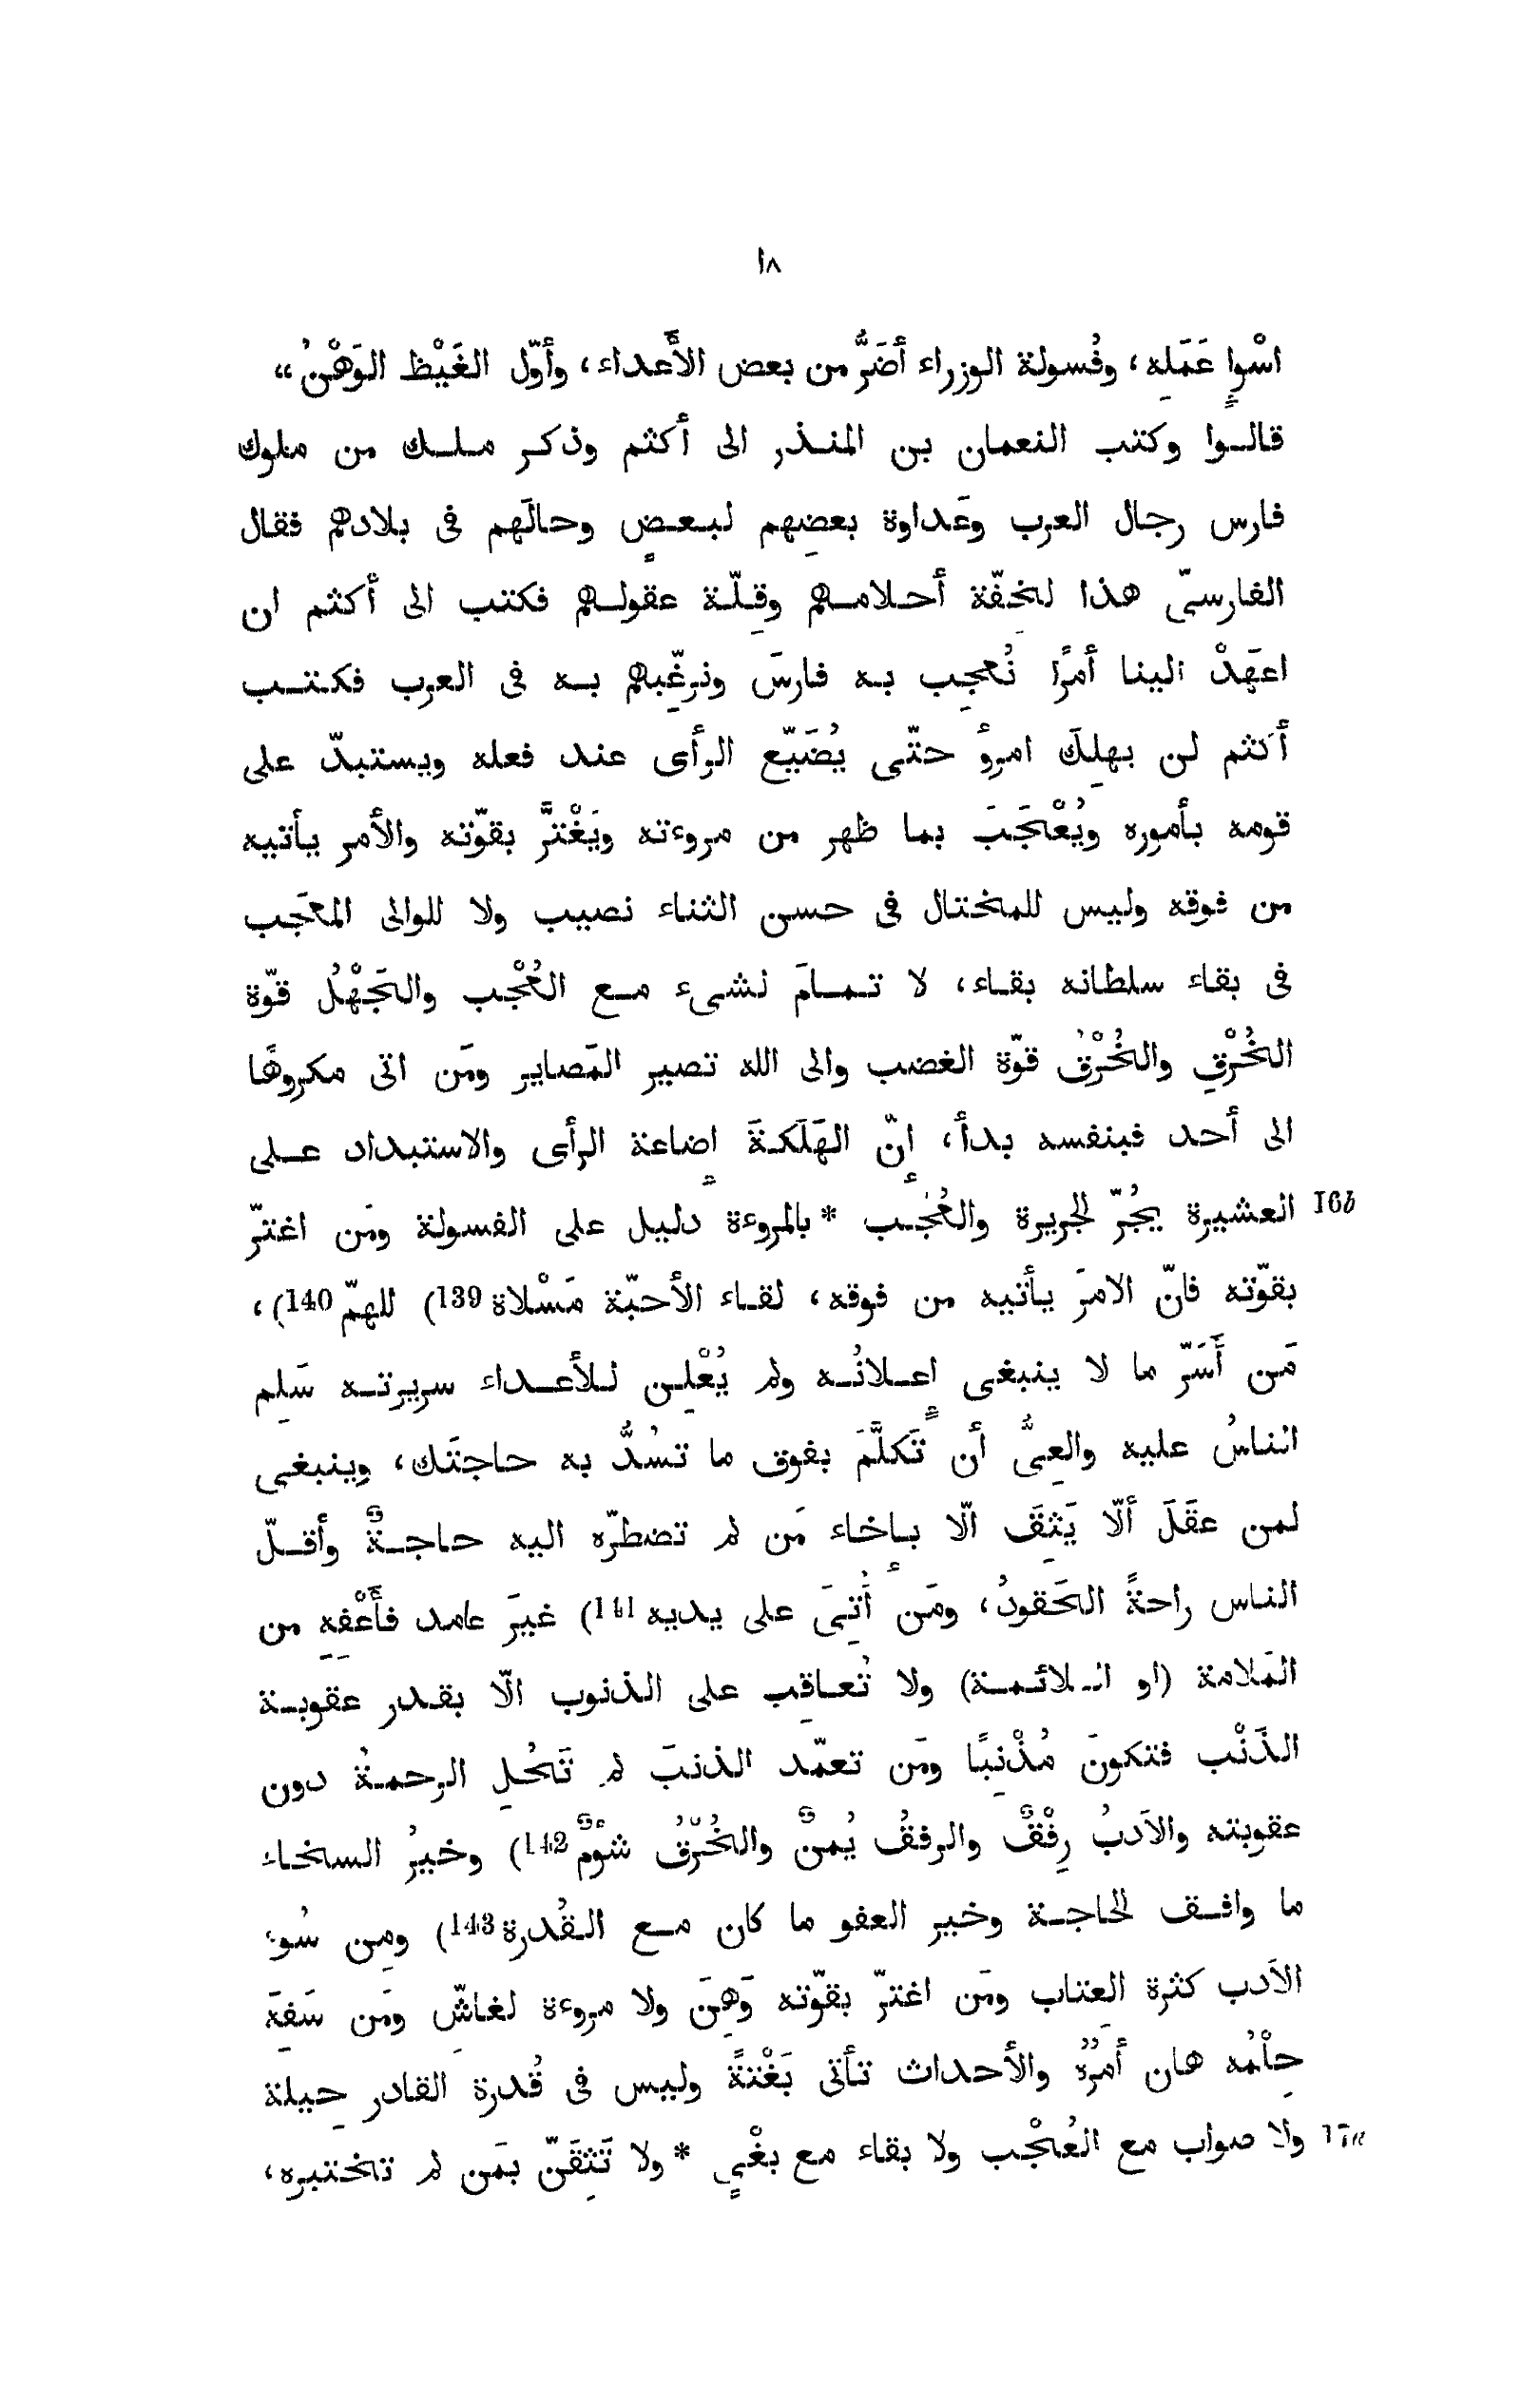 ١٨
اسْوإٍ عَمَلِه، وفُسولة الوزراء أضَرُّ من بعض الأَعداء، وأوّل الغَيْظ الوَهْنُ “
قالوا وكتب النعمان بن المنذر الى أكثم وذكر ملك من ملوك
فارس رجال العرب وعَداوة بعضِهم لبعضٍ وحالَهم فى بلادهم فقال
الفارسىّ هذا لخفّة أحلامهم وقِلّة عقولهم فكتب الى أكثم ان
اعهَدْ الينا أمرًا نُعجِب به فارسَ ونرغّبِهم به فى العرب فكتب
أكثم لن يهلِكَ امرؤ حتّى يُضَيّع الرأى عند فعله ويستبدّ على
قومه بأموره ويُعْجَبَ بما ظهر من مروءته ويَغْترَّ بقوّته والأمر يأتيه
من فوقه وليس للمختال فى حسن الثناء نصيب ولا للوالى المعجَب
فى بقاء سلطانه بقاء، لا تمامَ لشىء مع العُجْب والجَهْلُ قوّة
الخُرْقِ والخُرْقُ قوّة الغضب والى الله تصير المَصاير ومَن اتى مكروهًا
الى أحد فبنفسه بدأ، إنّ الهَلَكةَ إضاعة الرأى والاستبداد على
16b العشيرة يجُرّ الجريرة والعُجْب * بالمروءة دليل على الفسولة ومَن اغترّ
بقوّته فانّ الامرَ يأتيه من فوقه، لقاء الأحبّة مَسْلاة 139) للهمّ 140)،
مَن أَسَرّ ما لا ينبغى إعلانُه ولم يُعْلِن للأعداء سريرته سَلِم
الناسُ عليه والعِىُّ أن تَكلَّمَ بفوق ما تسُدُّ به حاجتَك، وينبغى
لمن عقَلَ ألّا يَثِقَ الّا بإخاء مَن لم تضطرّه اليه حاجةٌ وأقلّ
الناس راحةً الحَقودُ، ومَن أُتِىَ على يديه 141) غيرَ عامد فأَعْفِهِ من
المَلامة (او اللائمة) ولا تُعاقِب على الذنوب الّا بقدر عقوبة
الذَنْب فتكونَ مُذْنِبًا ومَن تعمّد الذنبَ لم تَحُلِ الرحمةُ دون
عقوبته والأدبُ رِفْقٌ والرفقُ يُمنٌ والخُرْقُ شؤمٌ 142) وخيرُ السخاء
ما وافق الحاجة وخير العفو ما كان مع القُدرة 143) ومِن سُوء
الأدب كثرة العِتاب ومَن اغترّ بقوّته وَهَنَ ولا مروءة لغاشّ ومَن سَفِهَ
حِلْمُه هان أمرُه والأحداث تأتى بَغْتةً وليس فى قُدرة القادر حِيلة
17a ولا صواب مع العُجْب ولا بقاء مع بغْىٍ * ولا تَثِقَنّ بمَن لم تختبره،